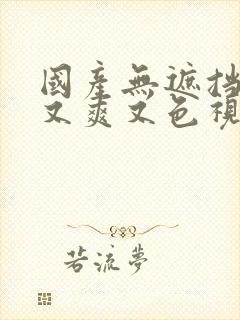 國產無遮挡
又爽又色視
若流夢